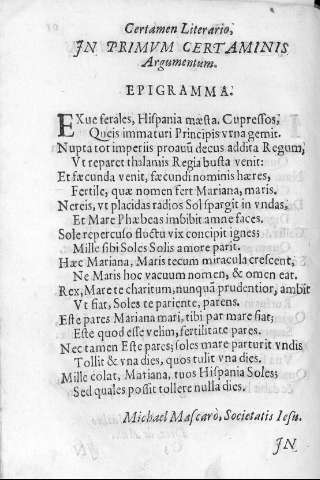 Certamen Literario,
IN PRIMVM CERTAMINIS
Argumentum.
EPIGRAMMA.
EXue ferales, Hispania mæsta. Cupressos,
Queis immaturi Principis vrna gemit.
Nupta tot imperiis proauũ decus addita Regum,
Vt reparet thalamis Regia busta venit:
Et fæcunda venit, fæcundi nominis hæres,
Fertile, quæ nomen fert Mariana, maris.
Nereis, vt placidas radios Sol spargit in vndas,
Et Mare Phæbeas imbibit amne faces.
Sole repercusso fluctu vix concipit ignes;
Mille sibi Soles Solis amore parit.
Hæc Mariana, Maris tecum miracula crescent,
Ne Maris hoc vacuum nomen, & omen eat.
Rex, Mare te charitum, nunquã prudentior, ambit
Vt fiat, Soles te pariente, parens.
Este pares Mariana mari, tibi par mare fiat;
Este quod esse velim, fertilitate pares.
Nec tamen Este pares; soles mare parturit vndis
Tollit & vna dies, quos tulit vna dies.
Mille colat, Mariana, tuos Hispania Soles;
Sed quales possit tollere nulla dies.
Michael Mascarò, Societatis Iesu.
IN